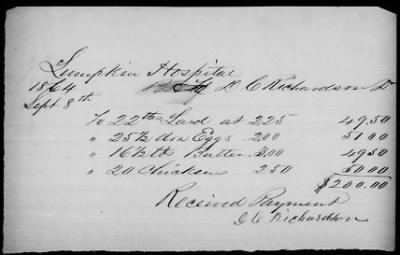 Lumpkin Hospital
1864 D C Richardson Dr
Sept 8th
To 22 lbs Lard at 2.25 49.50
" 25½ doz Eggs 2.00 51.00
" 16½ lb Butter 3.00 49.50
" 20 Chickens 2.50 50.00
$200.00
Received Payment
D C Richardson